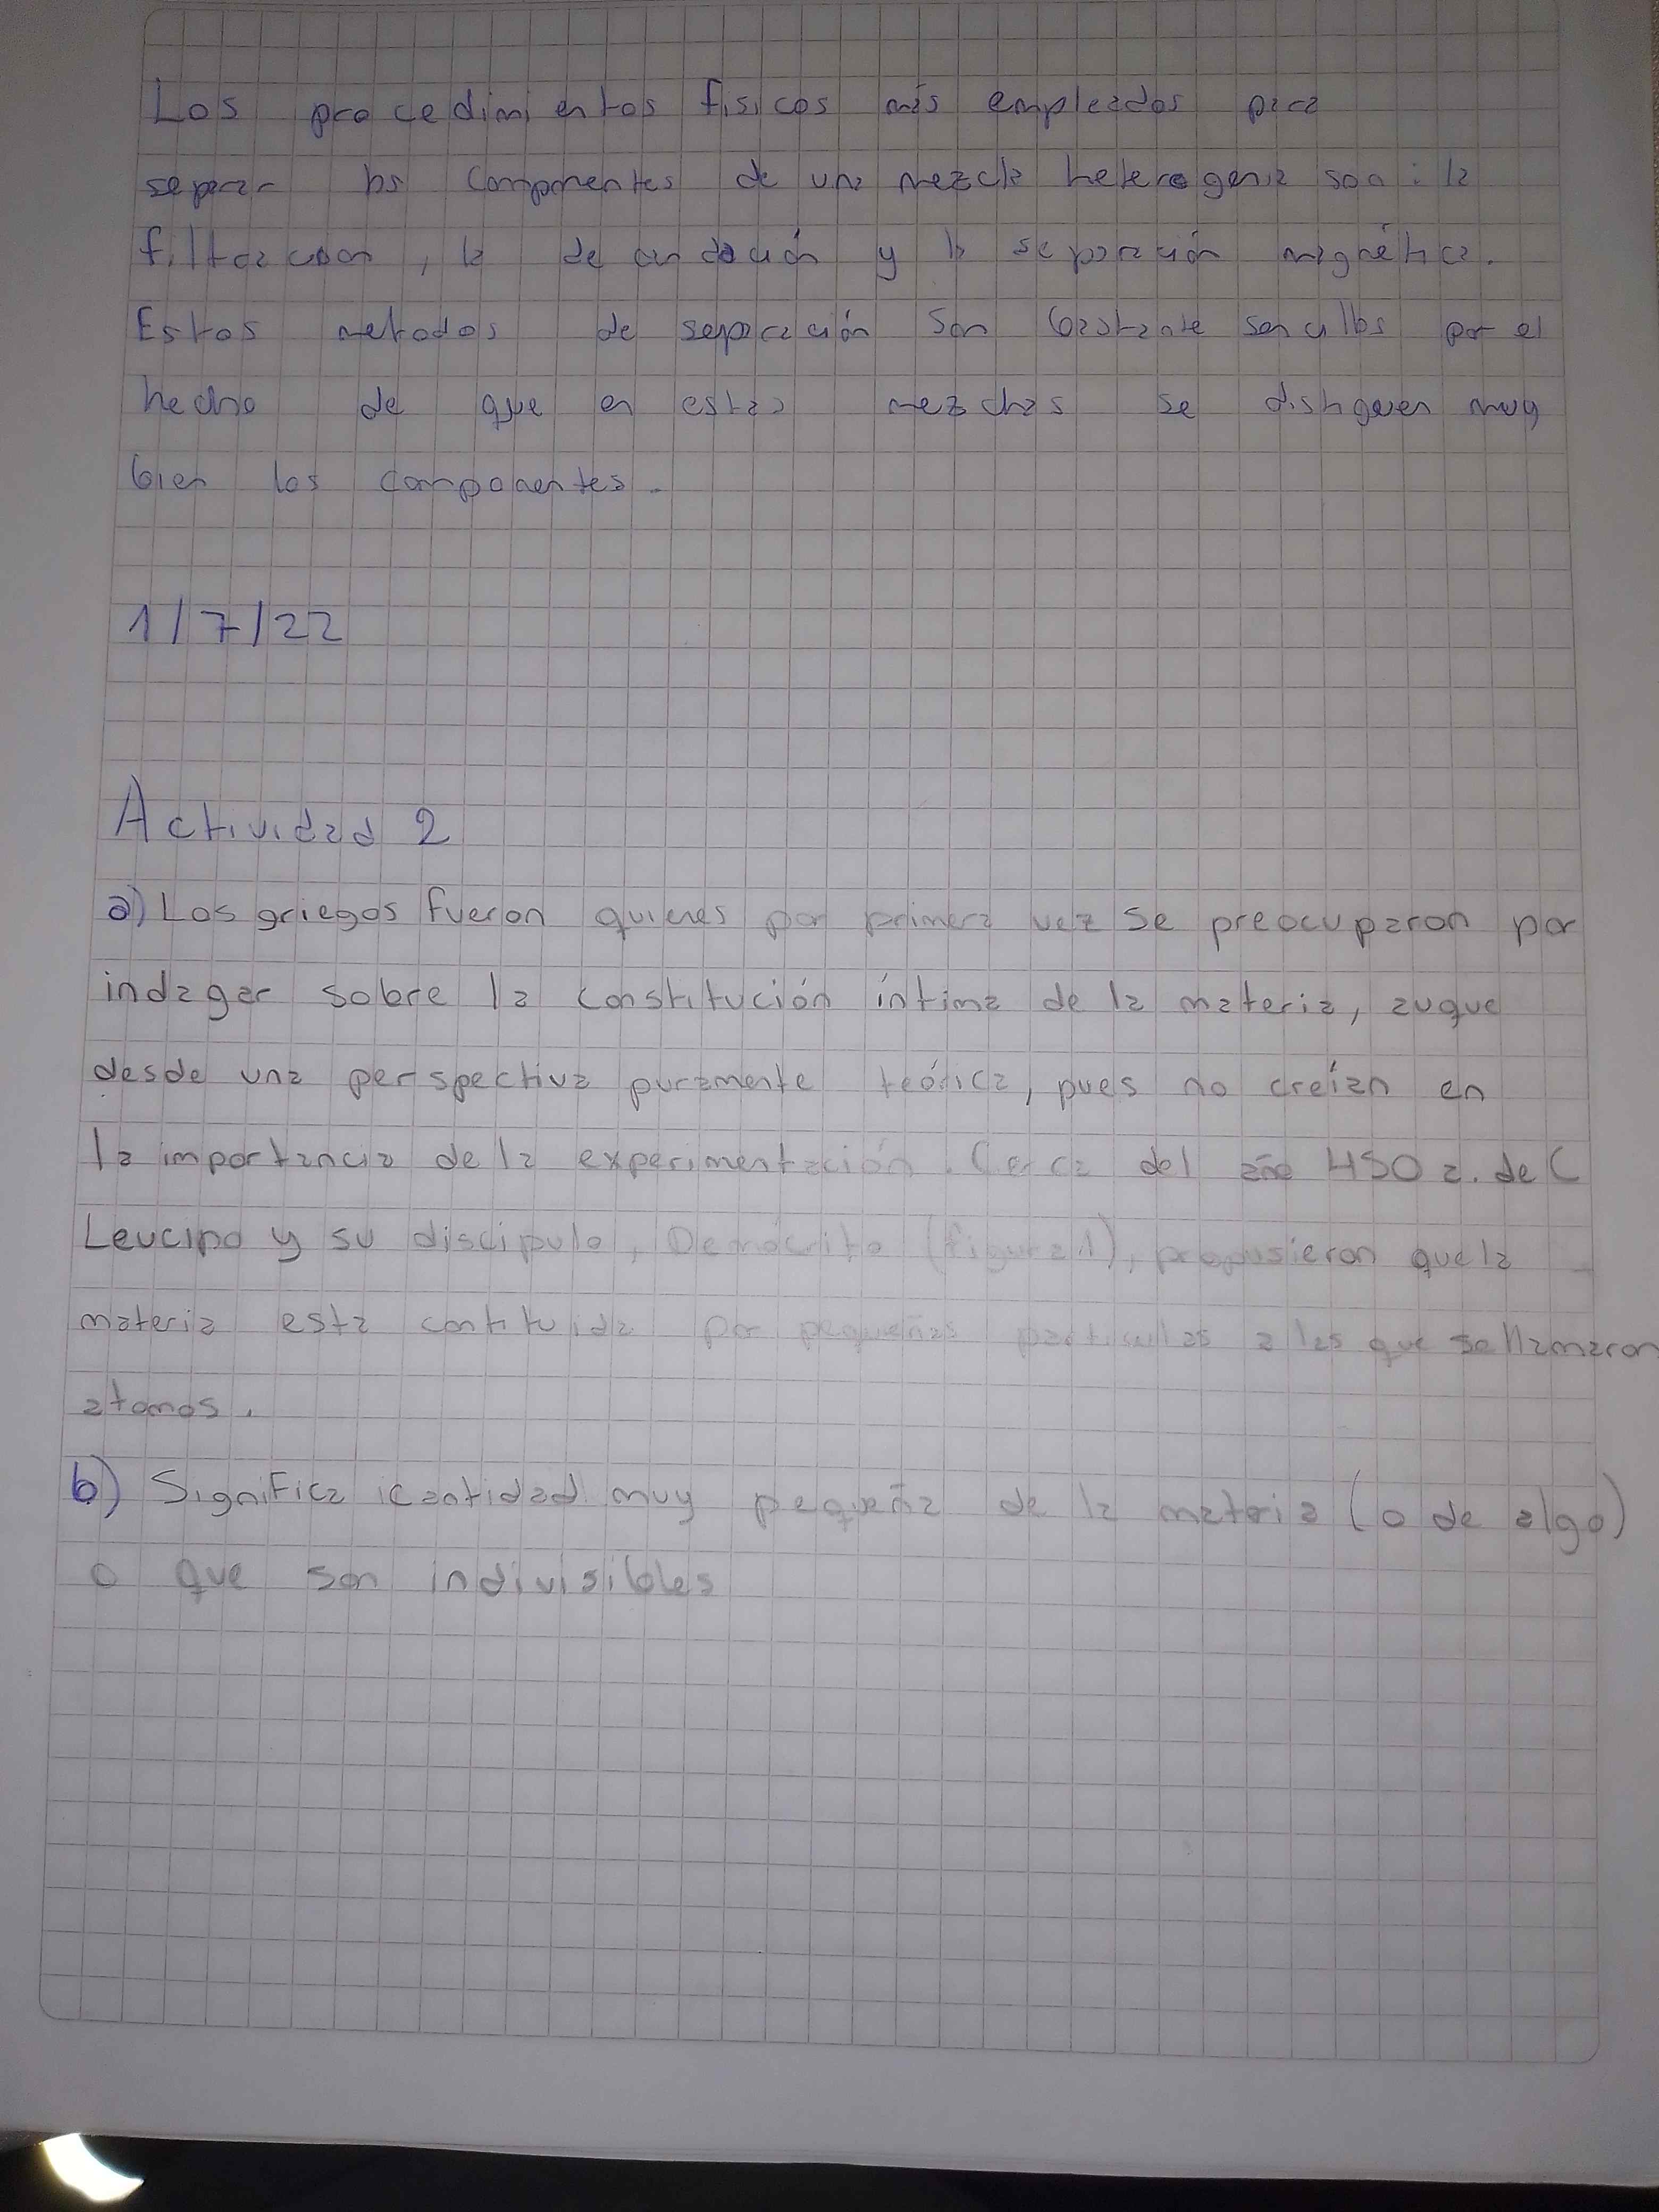 Los procedimientos fisicos más empleados para
separar los componentes de una mezcla heterogenia son : la
filtracion , la decandación y la separación magnética.
Estos metodos de separación son bastante sencillos por el
hecho de que en estas mezclas se distiguen muy
bien los componentes.
1/7/22
Actividad 2
a) Los griegos fueron quienes por primera vez se preocuparon por
indagar sobre la constitución íntima de la materia, auque
desde una perspectiva puramente teórica, pues no creían en
la importancia de la experimentación. Cerca del año 450 a. de C
Leucipo y su discipulo, Demócrito (figura 1), propusieron que la
materia esta contituida por pequeñas particulas a las que se llamaron
atomos.
b) Significa cantidad muy pequeña de la materia (o de algo)
o que son indivisibles